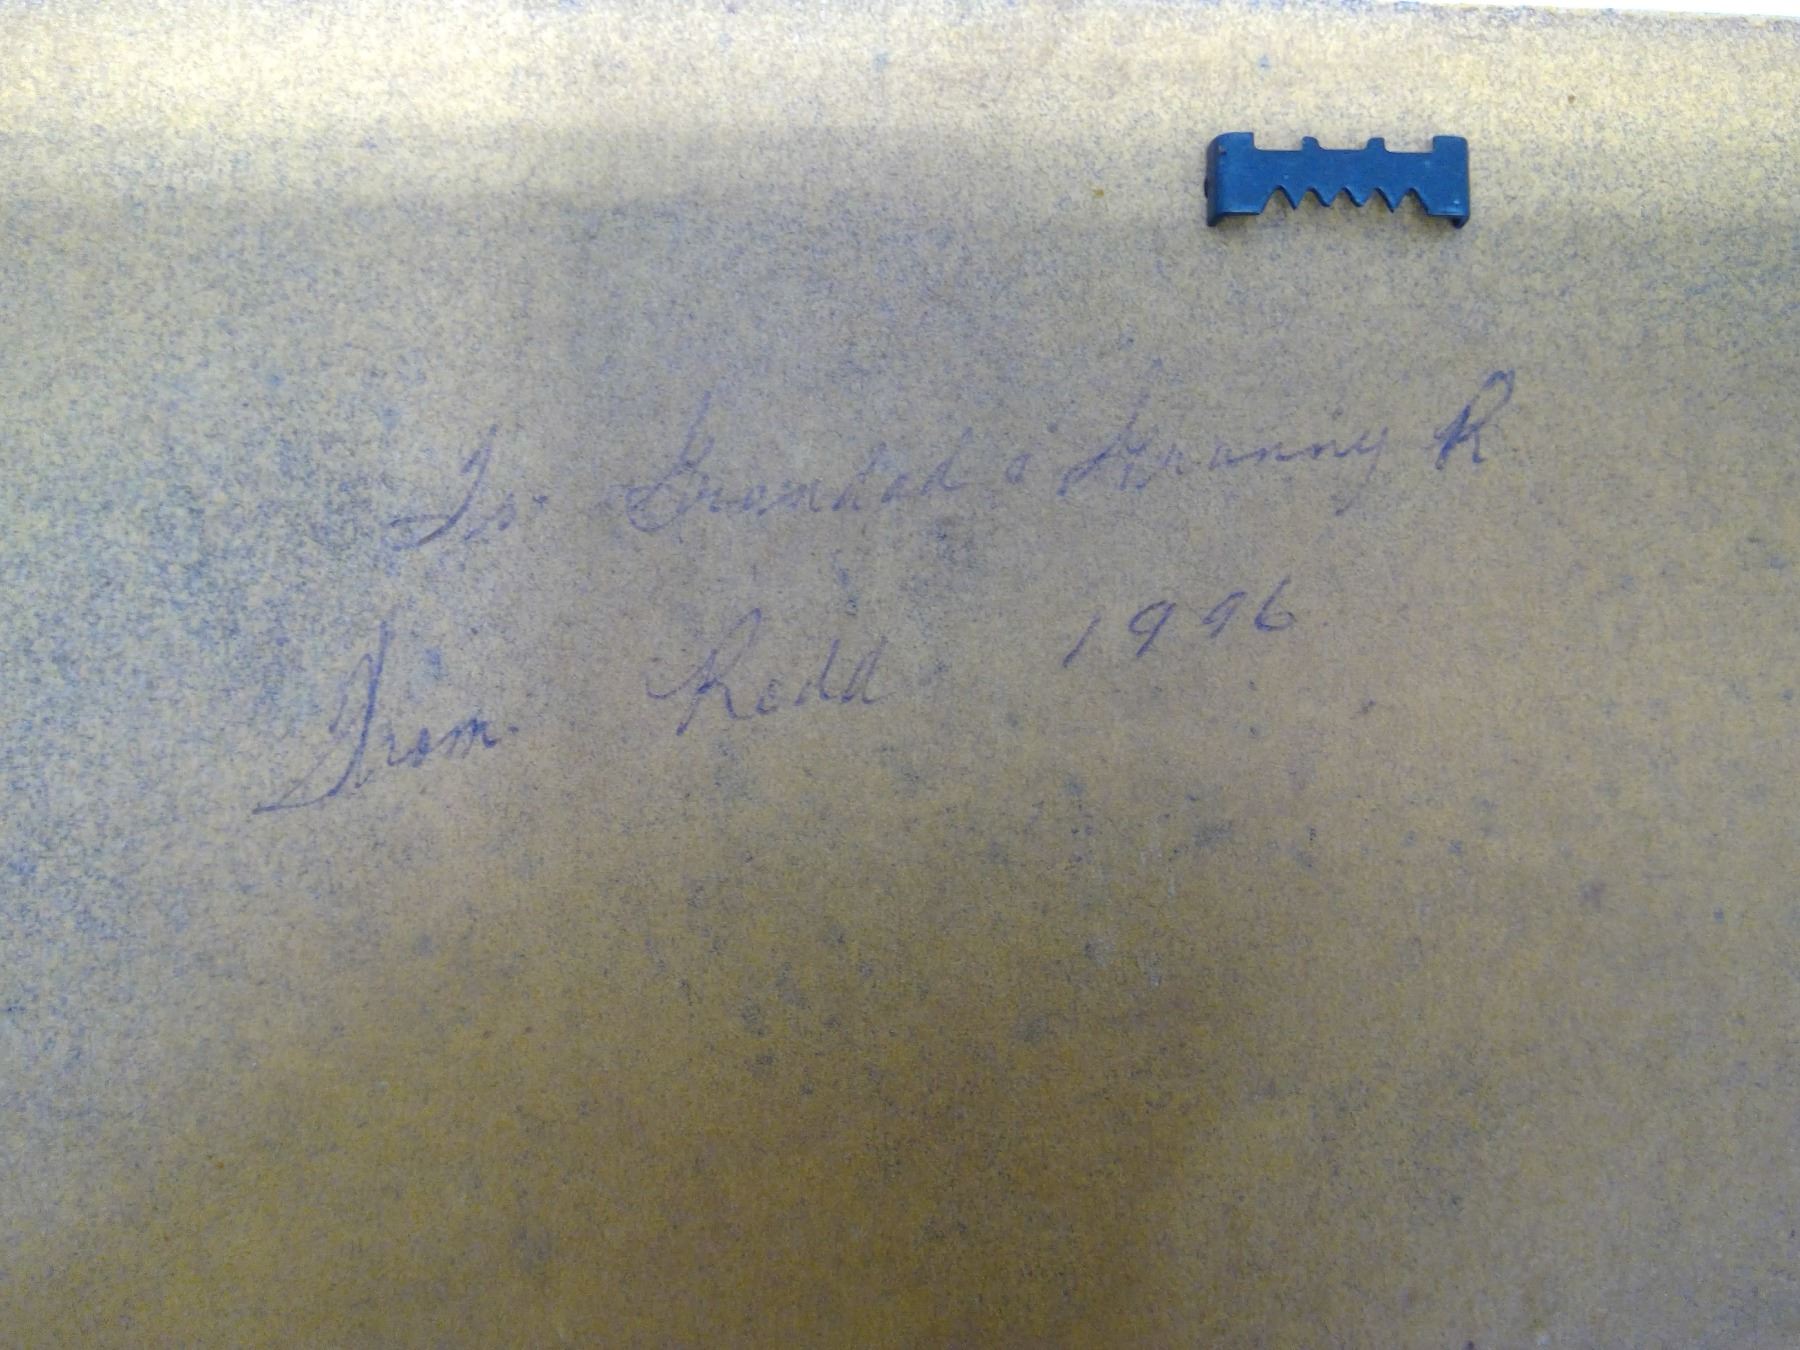 To Grandad & Granny R
From Redd 1996